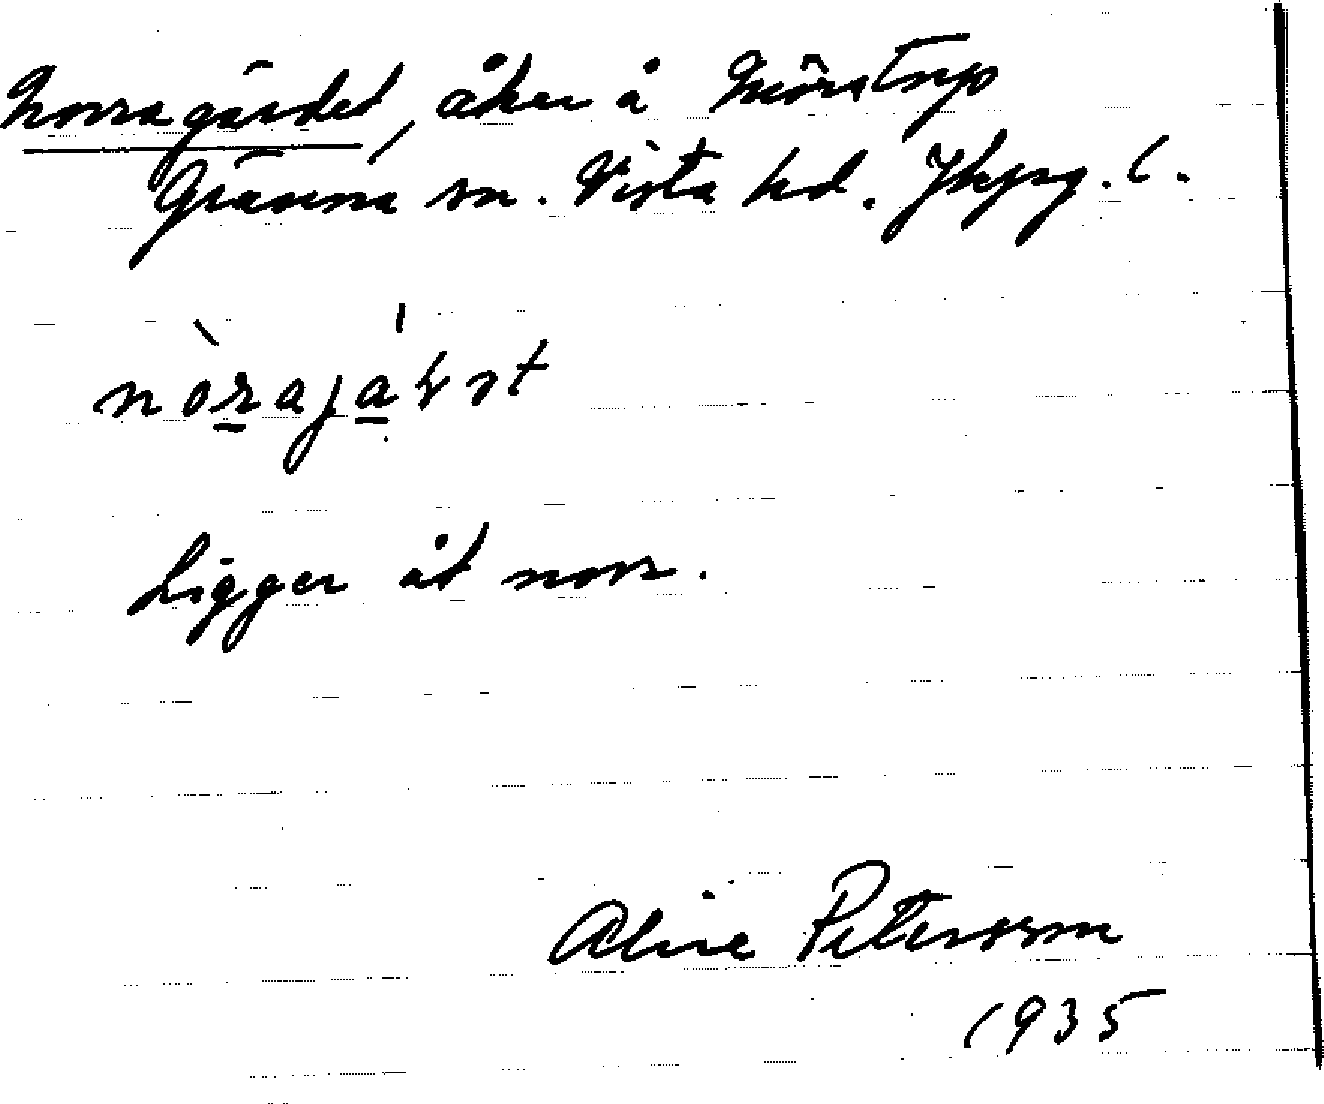 Norragärdet, åker å Mörstorp
Gränna sn. Vista hd. Jkpg. l.
Ligger åt norr.
Aline Petersson
1935